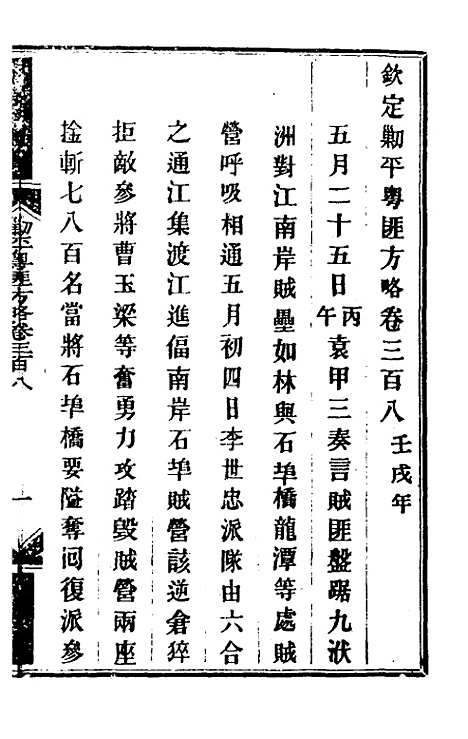 欽定剿平粵匪方略卷三百八 壬戌年
五月二十五日丙午袁甲三奏言賊匪盤踞九洑
洲對江南岸賊壘如林與石埠橋龍潭等處賊
營呼吸相通五月初四日李世忠派隊由六合
之通江集渡江進偪南岸石埠賊營該逆倉猝
拒敵參將曹玉梁等奮勇力攻踏毀賊營兩座
擒斬七八百名當將石埠橋要隘奪回復派參
剿平粵匪方略卷三百八
一